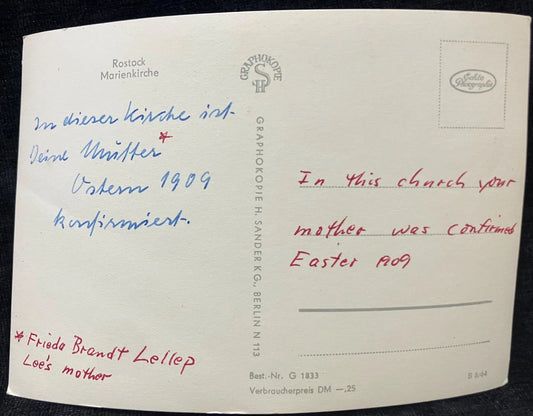 Rostock
Marienkirche
In dieser Kirche ist
Deine Mutter*
Ostern 1909
konfirmiert.
* Frieda Brandt Lellep
Lee's mother
GRAPHOKOPIE
SH
GRAPHOKOPIE H. SANDER KG., BERLIN N 113
Echte
Photographie
In this church your
mother was confirmed
Easter 1909
Best.-Nr. G 1833
Verbraucherpreis DM —,25